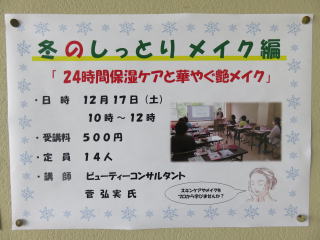 冬のしっとりメイク編
「24時間保湿ケアと華やぐ艶メイク」
・日 時 12月17日(土)
10時～12時
・受講料 500円
・定 員 14人
・講 師 ビューティーコンサルタント
菅 弘実 氏
スキンケアやメイクを
プロから学びませんか?